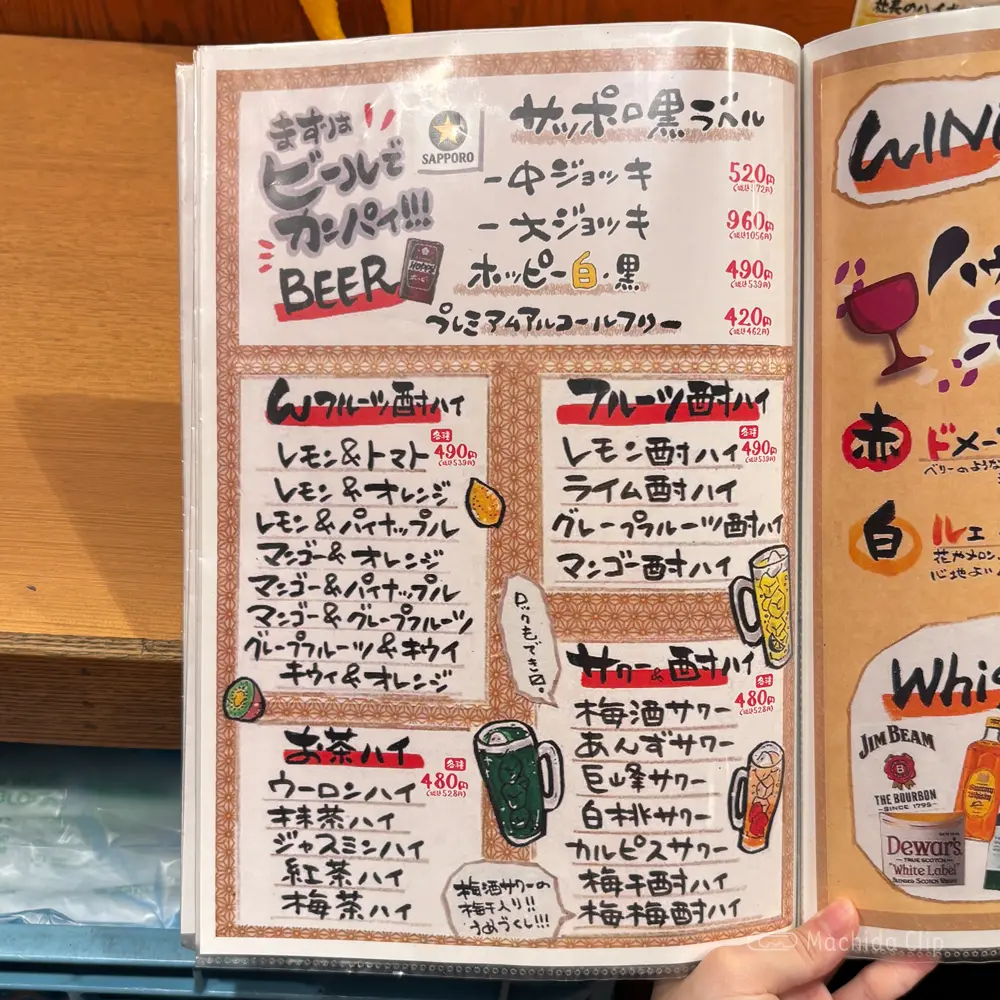 社長のハイボ
まずは
ビールで
カンパイ!!!
BEER
SAPPORO
サッポロ黒ラベル
一中ジョッキ 520円
(税込572円)
一大ジョッキ 960円
(税込1056円)
ホッピー白・黒 490円
(税込539円)
プレミアムアルコールフリー 420円
(税込462円)
Wフルーツ酎ハイ
各種
レモン&トマト 490円
(税込539円)
レモン&オレンジ
レモン&パイナップル
マンゴー&オレンジ
マンゴー&パイナップル
マンゴー&グレープフルーツ
グレープフルーツ&キウイ
キウイ&オレンジ
お茶ハイ
各種
ウーロンハイ 480円
(税込528円)
抹茶ハイ
ジャスミンハイ
紅茶ハイ
梅茶ハイ
フルーツ酎ハイ
各種
レモン酎ハイ 490円
(税込539円)
ライム酎ハイ
グレープフルーツ酎ハイ
マンゴー酎ハイ
ロックもできます。
サワー&酎ハイ
各種
梅酒サワー 480円
(税込528円)
あんずサワー
巨峰サワー
白桃サワー
カルピスサワー
梅干酎ハイ
梅梅酎ハイ
梅酒サワーの
梅干入り!!
うめづくし!!!
WIN
ハウ
赤
ドメー
ベリーのような
白
ルェ
花やメロン
心地よい
Whis
JIM BEAM
THE BOURBON
SINCE 1795
Dewar's
TRUE SCOTCH
"White Label"
BLENDED SCOTCH WHISKY
Machida Clip